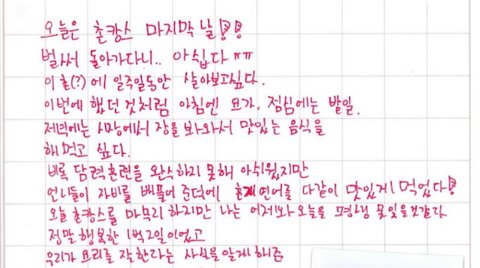 오늘은 촌캉스 마지막 날!!
벌써 돌아가다니.. 아쉽다 ㅠㅠ
이 촌(?)에 일주일동안 살아보고싶다.
이번에 했던 것처럼 아침엔 요가, 점심에는 밭일.
저녁에는 시장에서 장을 봐와서 맛있는 음식을
해먹고 싶다.
비록 담력훈련을 완수하지 못해 아쉬웠지만
언니들이 자비를 베풀어 준덕에 훈제연어를 다같이 맛있게 먹었다!
오늘 촌캉스를 마무리 하지만 나는 어제와 오늘을 평생 못잊을것같다
정말 행복한 1박2일이었고
우리가 요리를 잘한다는 사실을 알게해줌